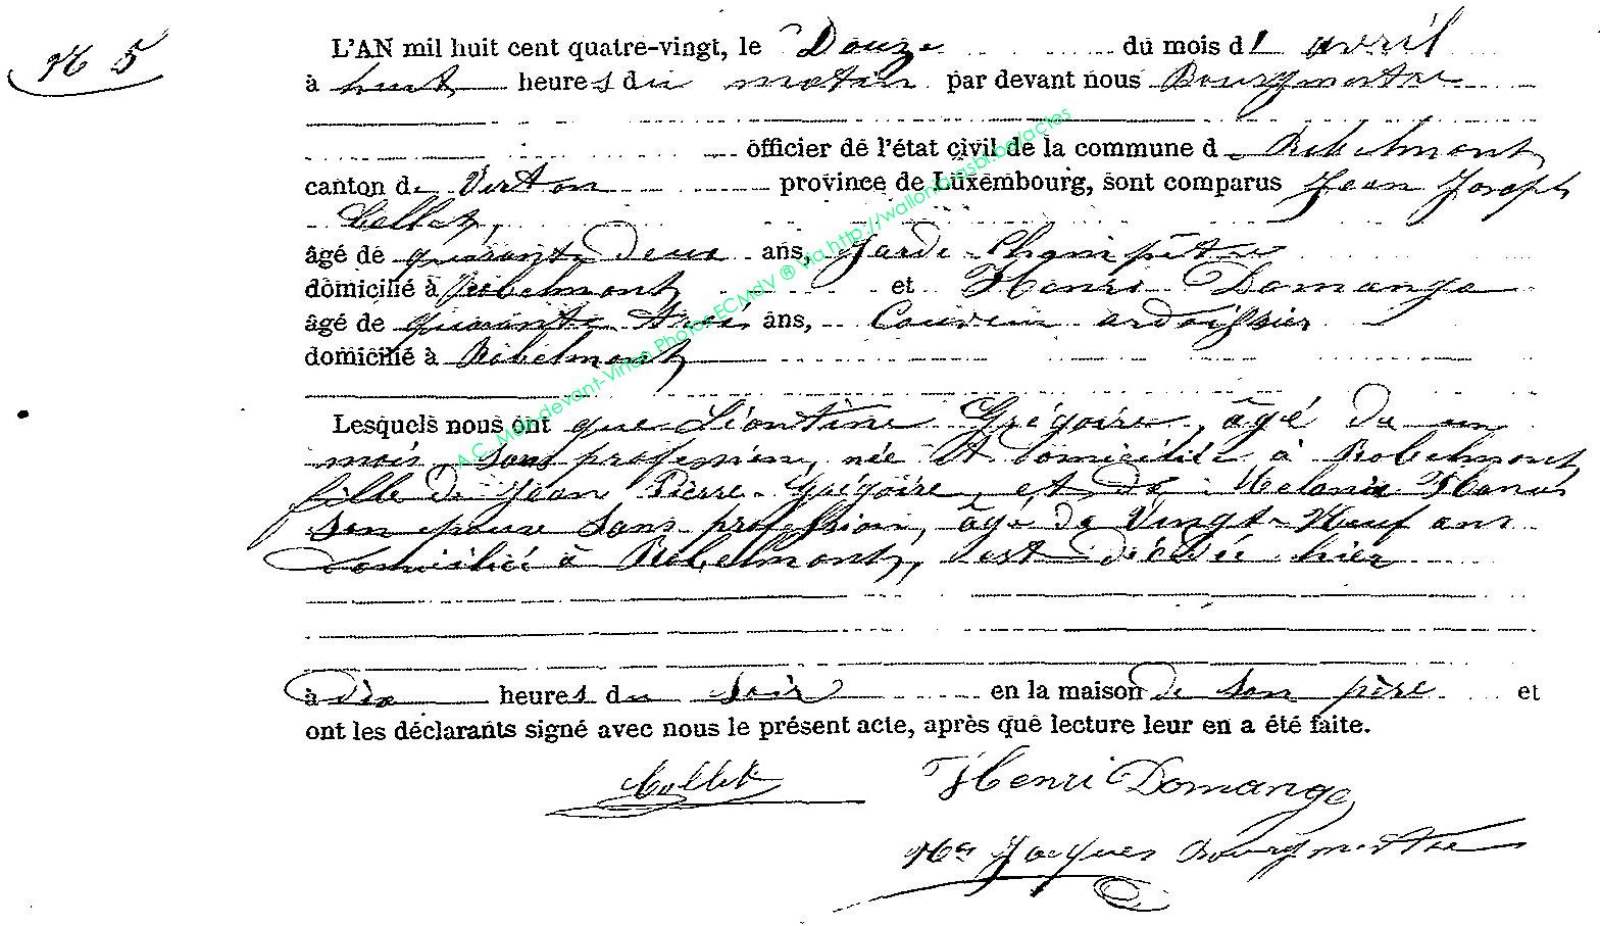 N 5
L'AN mil huit cent quatre-vingt, le Douze du mois d'avril
à huit heures du matin par devant nous Bourgmestre
officier de l'état civil de la commune de Robelmont
canton de Virton province de Luxembourg, sont comparus Jean Joseph
Collet,
âgé de quarante deux ans, Garde Champêtre
domicilié à Robelmont et Henri Domange
âgé de quarante trois ans, Couvreur ardoissier
domicilié à Robelmont
Lesquels nous ont que Léontine Grégoire, âgé du un
mois sans profession, née et domiciliée à Robelmont
fille de Jean Pierre Grégoire, et de Melanie Hanus
son epouse sans profession, âgé de Vingt-Neuf ans
domicilié à Robelmont, est décédée hier
à dix heures du soir en la maison de son père et
ont les déclarants signé avec nous le présent acte, après que lecture leur en a été faite.
Collet Henri Domange
Jacques Bourgmestre
A.C. Meix-devant-Virton Photos ECMdV ® via http://wallonia-asbl.be/actes